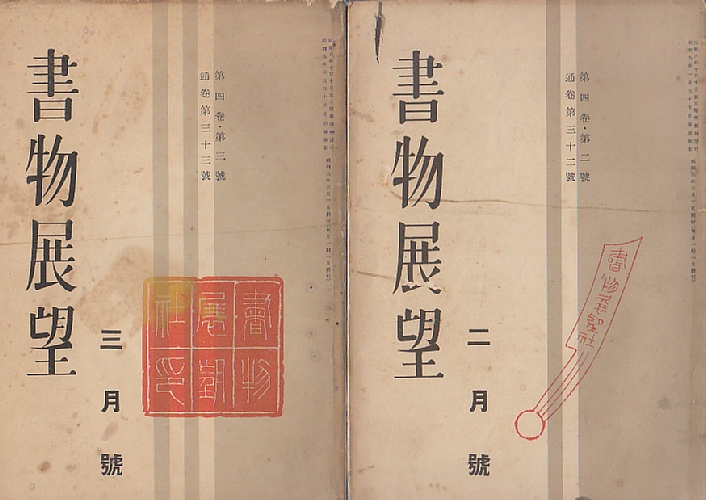 書物展望
三月號
第四卷・第三號
通卷第三十三號
書物
展望
社印
書物展望
二月號
第四卷・第二號
通卷第三十二號
書物展望社